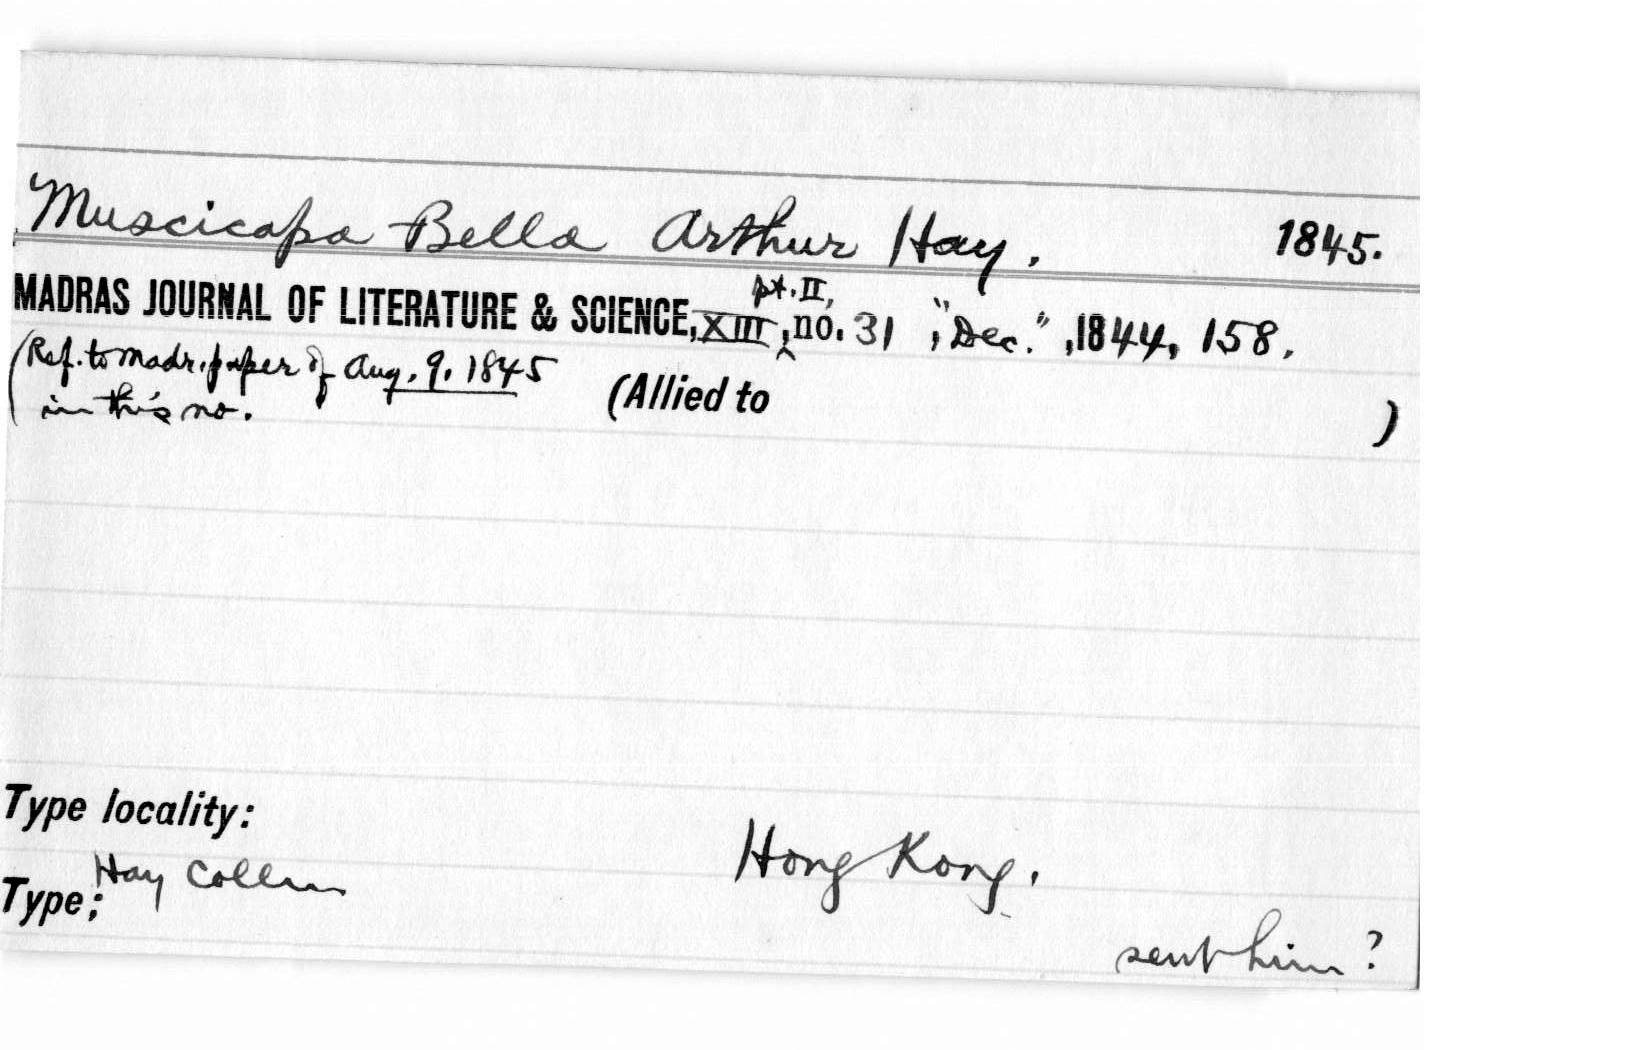 Muscicapa Bella Arthur Hay. 1845.
pt. II,
MADRAS JOURNAL OF LITERATURE & SCIENCE, XIII, no. 31, "Dec.", 1844, 158.
(Ref. to Madr. paper of Aug. 9. 1845
in this no. (Allied to )
Type locality: Hong Kong.
Hay Colln
Type;
sent him ?